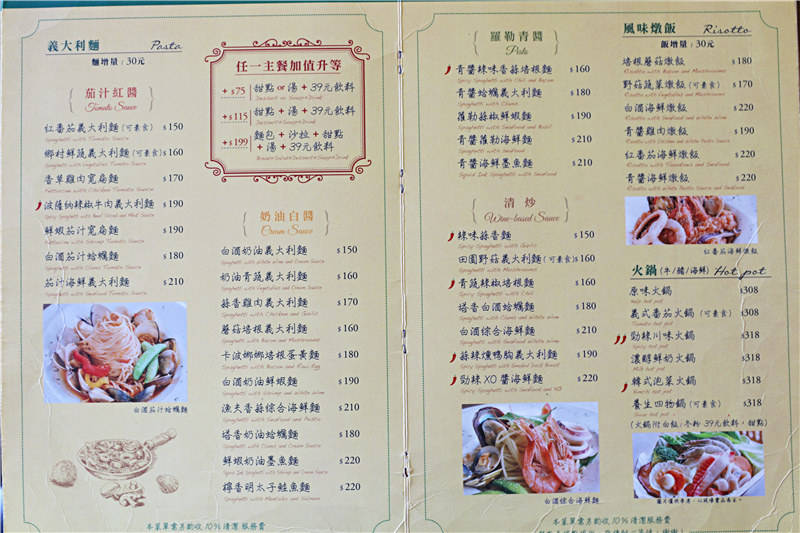 義大利麵 Pasta
麵增量：30元
茄汁紅醬
Tomato Sauce
紅番茄義大利麵(可素食) $150
Spaghetti with Tomato Sauce
鄉村鮮蔬義大利麵(可素食) $160
香草雞肉寬扁麵 $170
Fettuccine with Chicken Tomato Sauce
波薩納辣椒牛肉義大利麵 $190
鮮蝦茄汁寬扁麵 $190
白酒茄汁蛤蠣麵 $180
茄汁海鮮義大利麵 $210
Spaghetti with Seafood Tomato Sauce
白酒茄汁蛤蠣麵
任一主餐加值升等
+$75 甜點 or 湯 + 39元飲料
+$115 甜點 + 湯 + 39元飲料
+$199 麵包 + 沙拉 + 甜點
+ 湯 + 39元飲料
奶油白醬
Cream Sauce
白酒奶油義大利麵 $150
Spaghetti with White Wine and Cream Sauce
奶油青蔬義大利麵 $160
Spaghetti with Vegetables and Cream Sauce
蒜香雞肉義大利麵 $170
Spaghetti with Chicken and Garlic
蘑菇培根義大利麵 $160
Spaghetti with Bacon and Mushrooms
卡波娜娜培根蛋黃麵 $190
Spaghetti with Bacon and Raw Egg
白酒奶油鮮蝦麵 $190
Spaghetti with Shrimp and White Wine
漁夫香蒜綜合海鮮麵 $210
塔香奶油蛤蠣麵 $180
Spaghetti with Clams and Cream Sauce
鮮蝦奶油墨魚麵 $220
檸香明太子鮭魚麵 $220
Spaghetti with Mentaiko and Salmon
本菜單需另酌收10%清潔服務費
羅勒青醬
Pesto
青醬辣味香蒜培根麵 $160
青醬蛤蠣義大利麵 $180
Spaghetti with Clams
羅勒蒜椒鮮蝦麵 $190
青醬羅勒海鮮麵 $210
Spaghetti with Seafood
青醬海鮮墨魚麵 $210
Squid Ink Spaghetti with Seafood
清炒
Wine-based Sauce
辣味蒜香麵 $150
Spicy Spaghetti with Garlic
田園野菇義大利麵(可素食) $160
Spaghetti with Mushrooms
青蔬辣椒培根麵 $160
塔香白酒蛤蠣麵 $180
Spaghetti with Clams and White Wine
白酒綜合海鮮麵 $210
Spaghetti with Seafood and White Wine
蒜辣燻鴨胸義大利麵 $190
Spicy Spaghetti with Smoked Duck Breast
勁辣XO醬海鮮麵 $220
Spicy Spaghetti with Seafood and XO
白酒綜合海鮮麵
風味燉飯 Risotto
飯增量：30元
培根蘑菇燉飯 $180
Risotto with Bacon and Mushrooms
野菇蔬菜燉飯(可素食) $170
Risotto with Vegetables and Mushrooms
白酒海鮮燉飯 $220
Risotto with Seafood and White Wine
青醬雞肉燉飯 $190
Risotto with Chicken and White Pesto Sauce
紅番茄海鮮燉飯 $220
青醬海鮮燉飯 $220
紅番茄海鮮燉飯
火鍋(牛/豬/海鮮) Hot pot
原味火鍋 $308
義式番茄火鍋(可素食) $308
Tomato hot pot
勁辣川味火鍋 $318
Spicy hot pot
濃醇鮮奶火鍋 $318
Milk hot pot
韓式泡菜火鍋 $318
Kimchi hot pot
養生四物鍋(可素食) $318
(火鍋附白飯/冬粉、39元飲料、甜點)
圖片僅供參考，以現場實品為主。